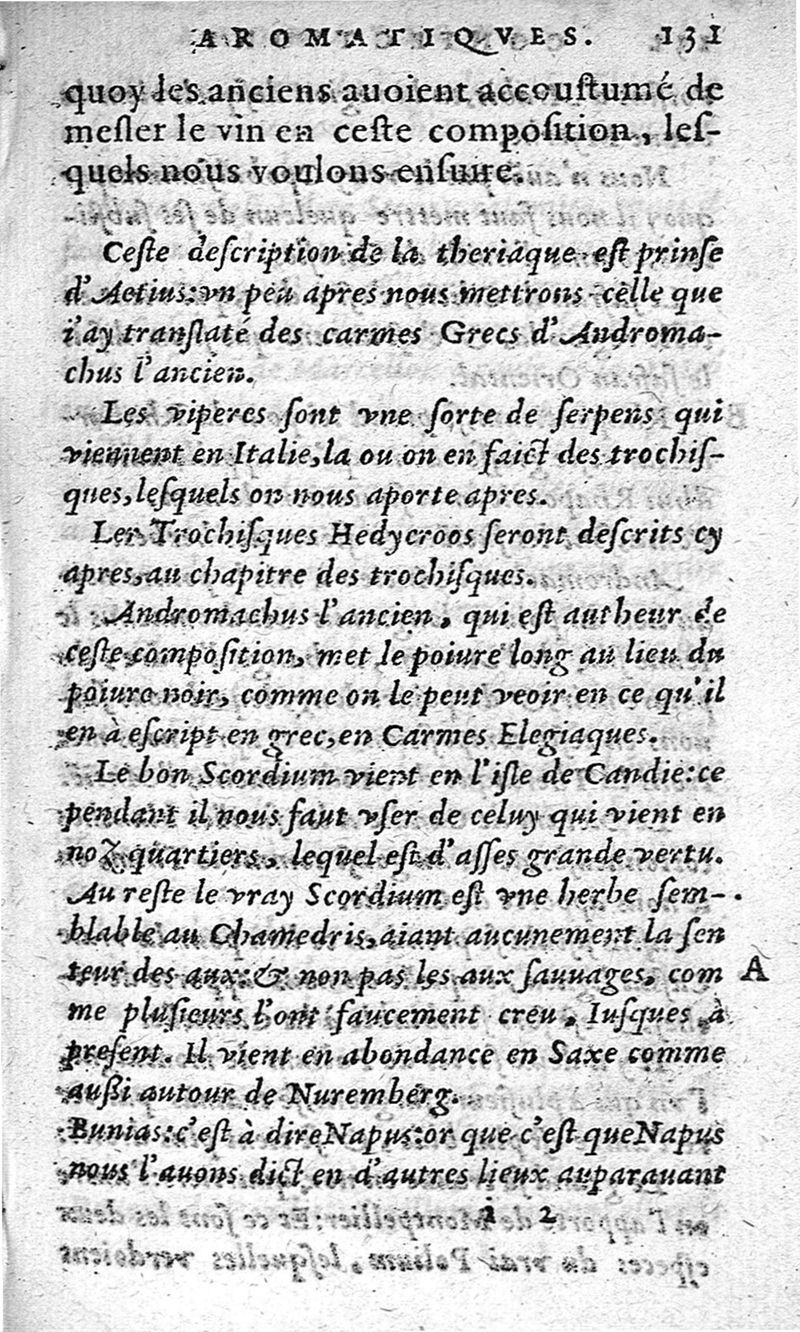 AROMATIQVES. 131
quoy les anciens auoient accouſtumé de
meſler le vin en ceſte compoſition, leſ-
quels nous voulons enſuire.
Ceſte deſcription de la theriaque eſt prinſe
d'Aetius: vn peu apres nous mettrons celle que
i'ay tranſlaté des carmes Grecs d'Androma-
chus l'ancien.
Les viperes ſont vne ſorte de ſerpens qui
viennent en Italie, la ou on en faict des trochiſ-
ques, leſquels on nous aporte apres.
Les Trochiſques Hedycroos ſeront deſcrits cy
apres, au chapitre des trochiſques.
Andromachus l'ancien, qui eſt autheur de
ceſte compoſition, met le poiure long au lieu du
poiure noir, comme on le peut veoir en ce qu'il
en à eſcript en grec, en Carmes Elegiaques.
Le bon Scordium vient en l'iſle de Candie: ce
pendant il nous faut vſer de celuy qui vient en
noz quartiers, lequel eſt d'aſſes grande vertu.
Au reſte le vray Scordium eſt vne herbe ſem-
blable au Chamedris, aiant aucunement la ſen
teur des aux: & non pas les aux ſauuages, com A
me pluſieurs l'ont faucement creu, Iuſques à
preſent. Il vient en abondance en Saxe comme
auſſi autour de Nuremberg.
Bunias: c'eſt à dire Napus: or que c'eſt que Napus
nous l'auons dict en d'autres lieux auparauant
i 2